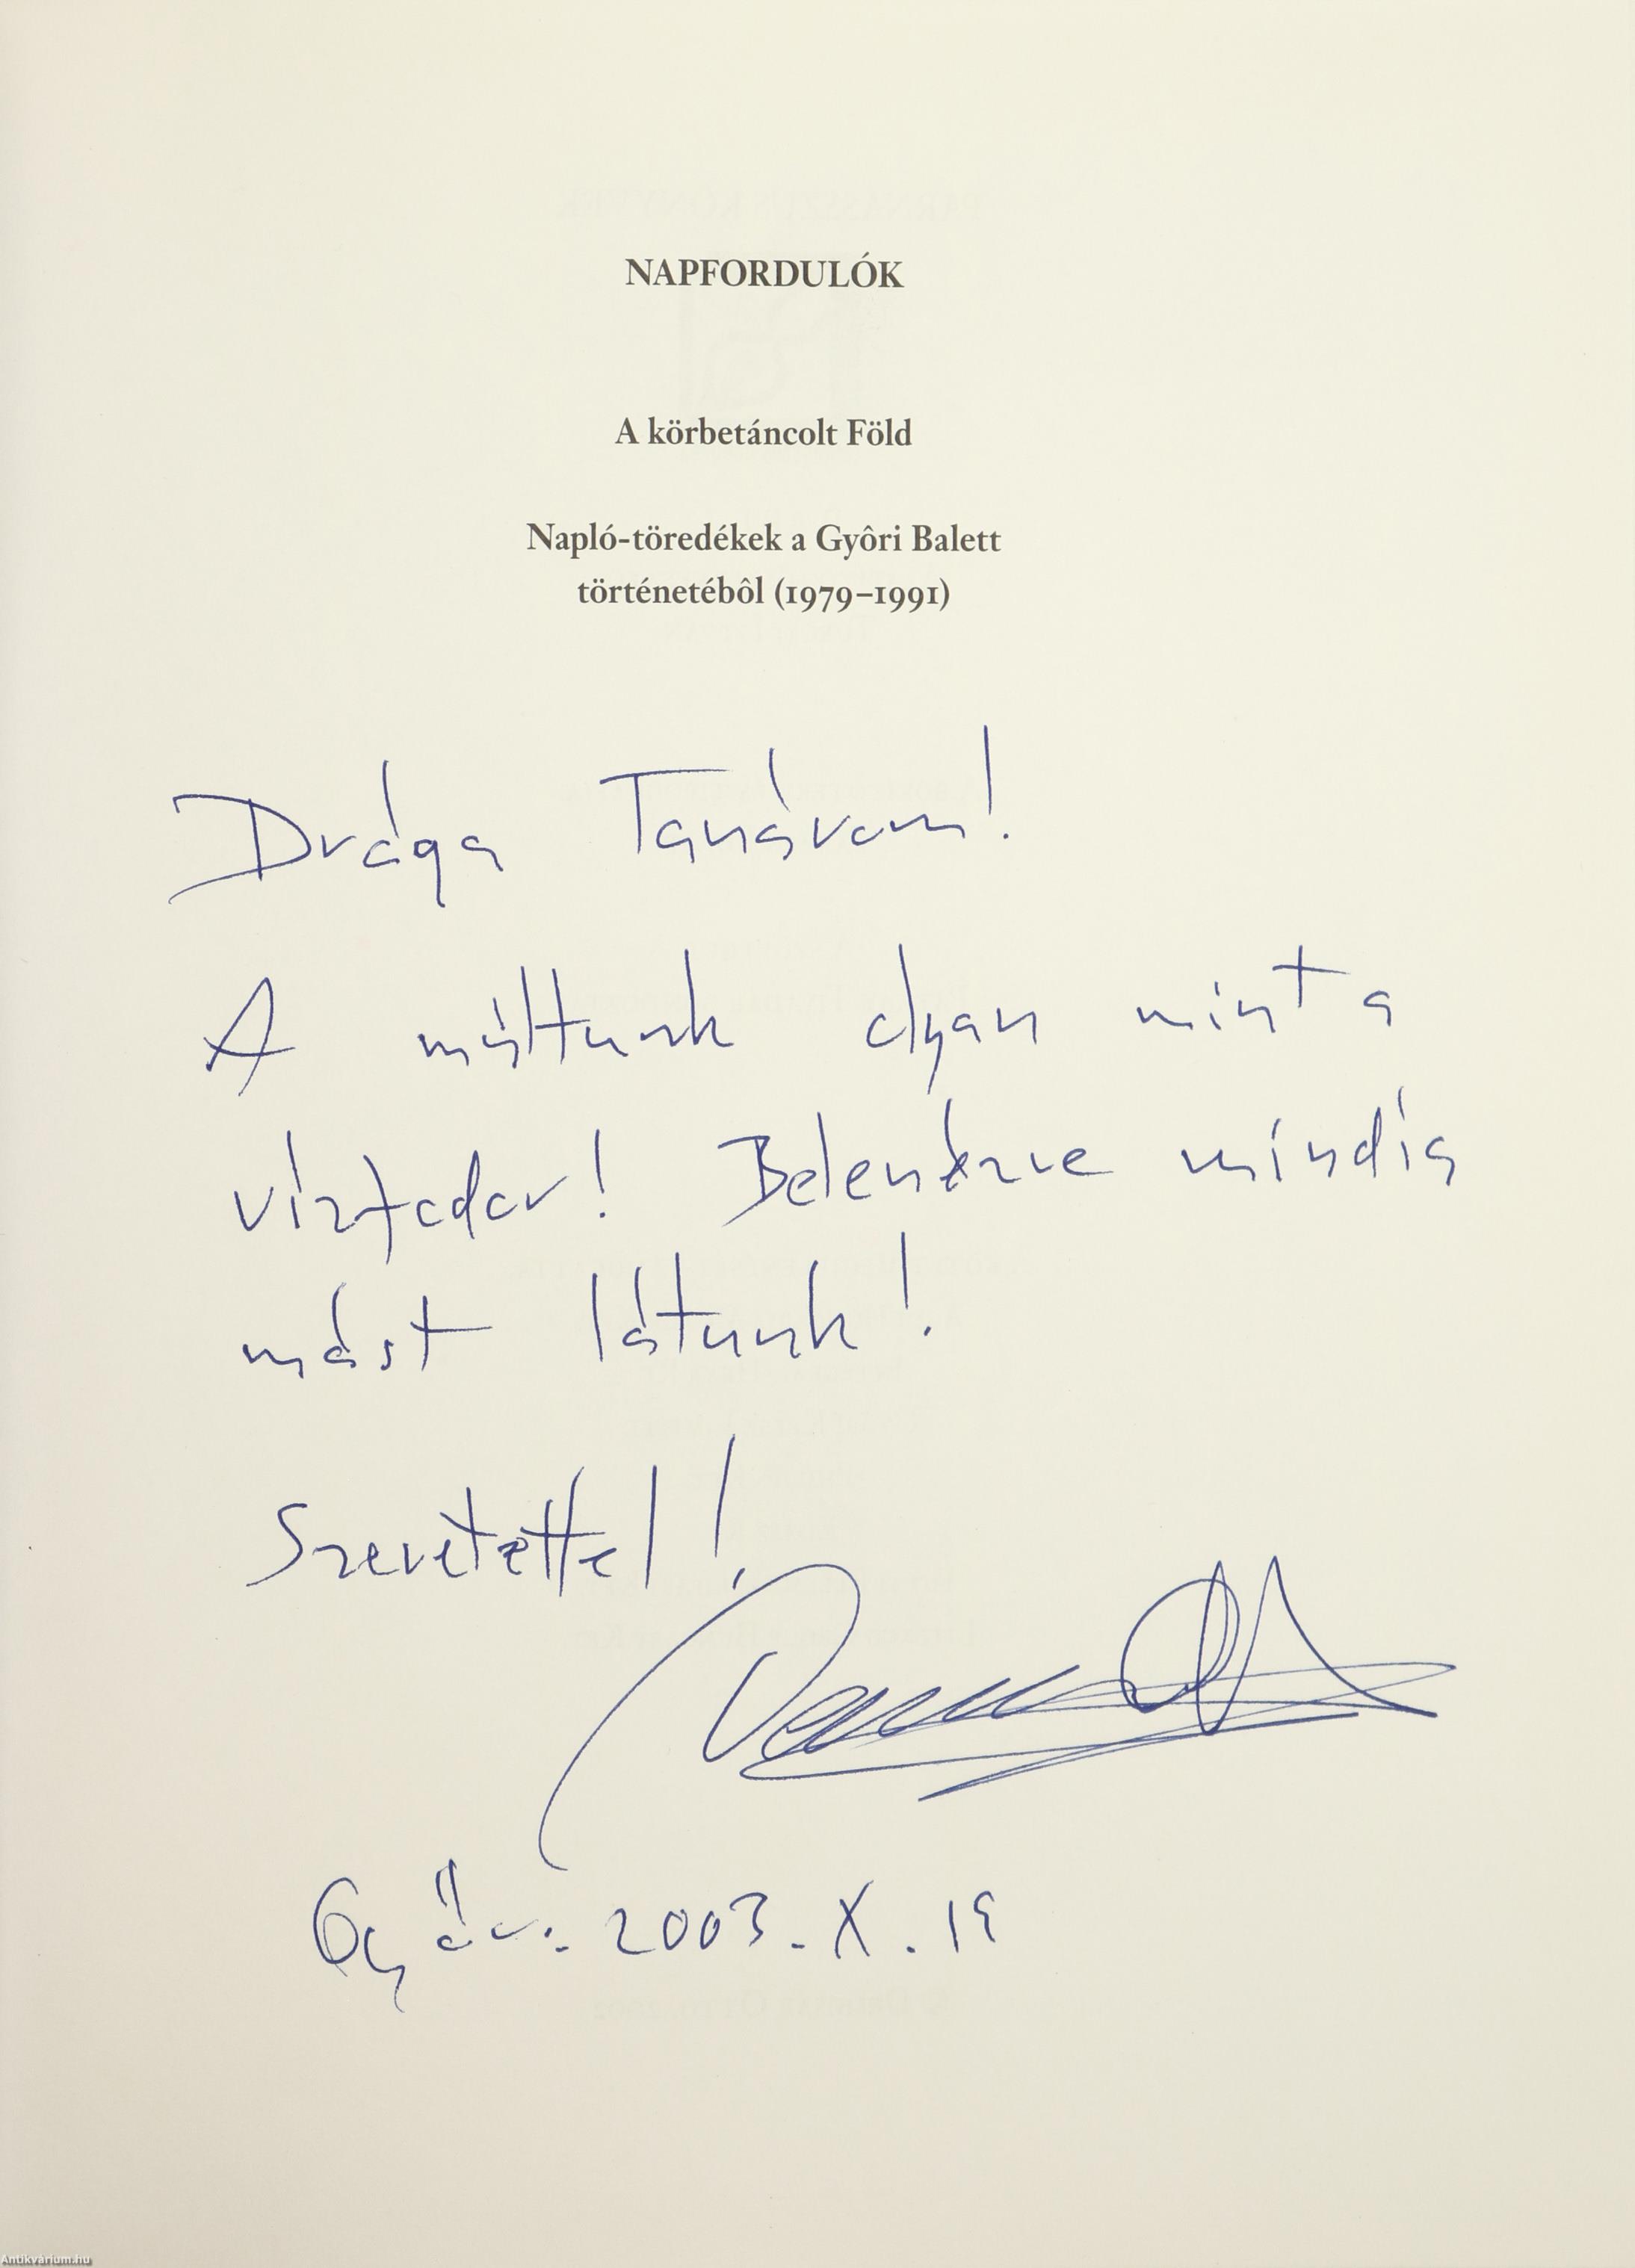 NAPFORDULÓK
A körbetáncolt Föld
Napló-töredékek a Gyôri Balett
történetébôl (1979–1991)
Drága Tanárom!
A múltunk olyan mint a
víztadar! Belenézve mindig
mást látunk!
Szeretettel!
Győr. 2003. X. 19
Antikvárium.hu